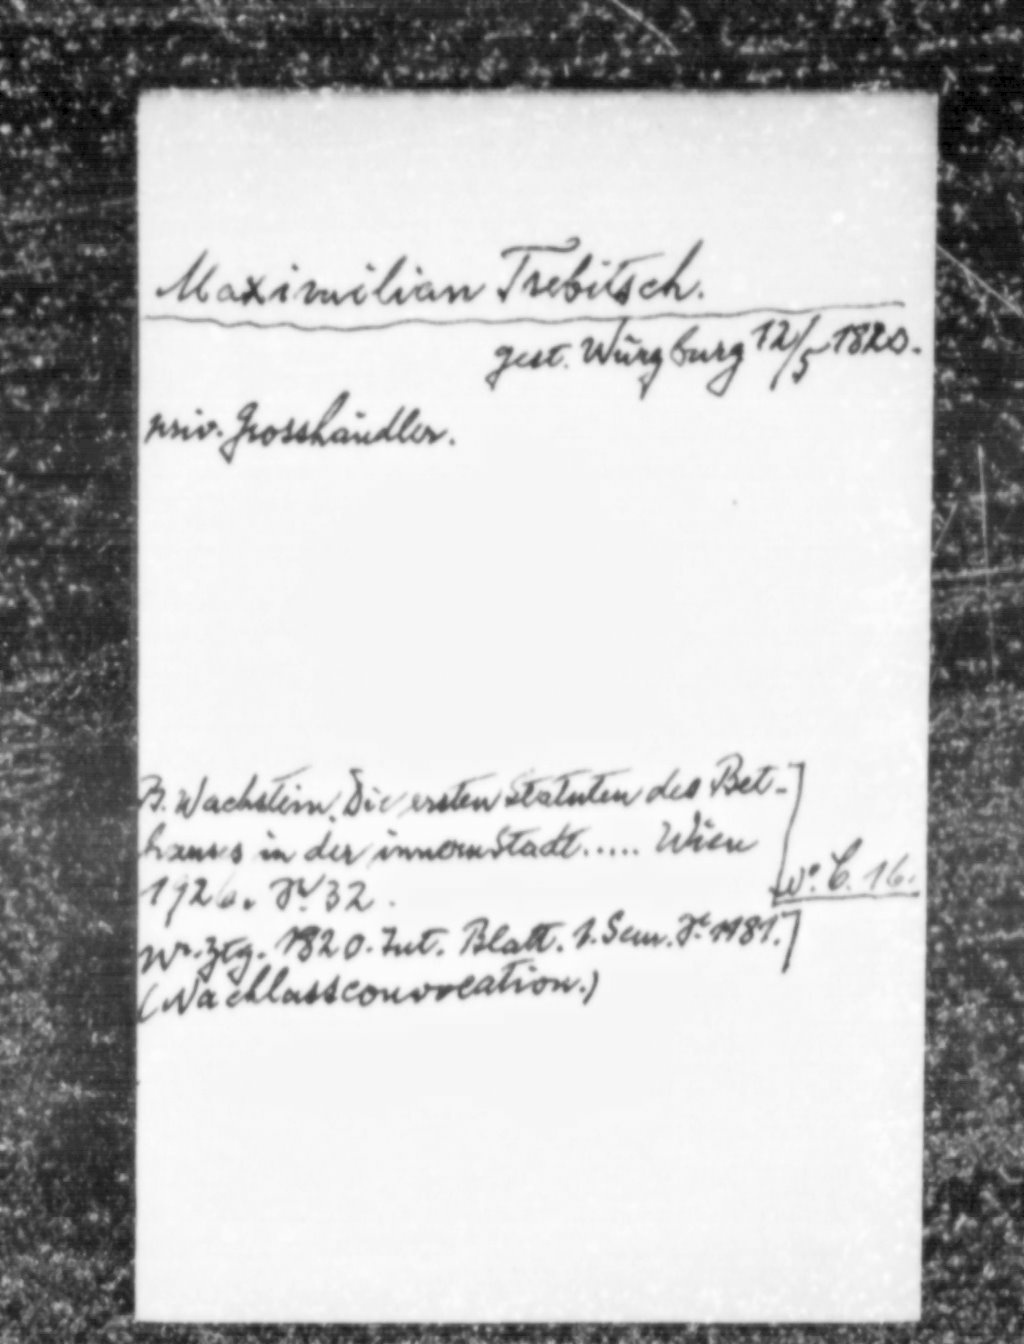 Maximilian Trebitsch.
gest. Würzburg 12/5 1820.
priv. Grosshändler.
B. Wachstein, Die ersten Statuten des Bet-
hauses in der innern Stadt..... Wien
1926. S. 32.
v. C. 16.
Wr. Ztg. 1820. Int. Blatt. 1. Sem. S. 1181.
(Nachlassconvocation.)